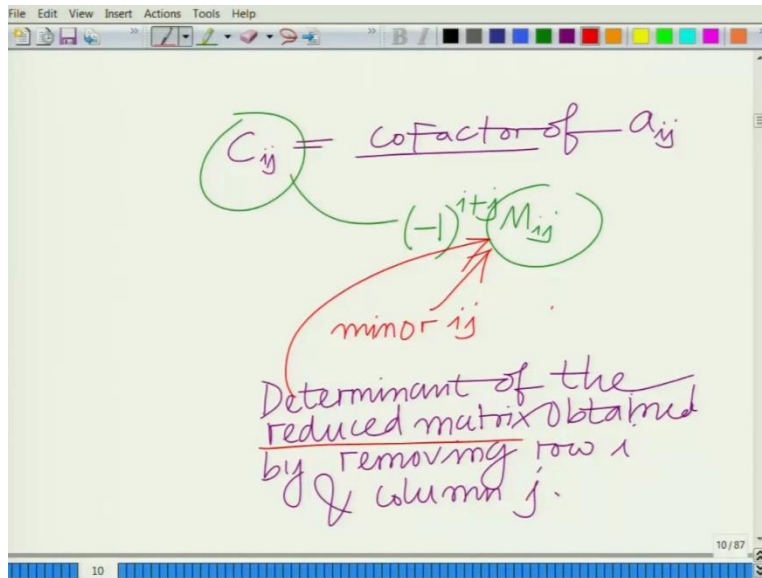 File Edit View Insert Actions Tools Help
B I
C ij = coFactor of a ij
(-1)^i+j M ij
minor ij
Determinant of the
reduced matrix obtained
by removing row i
& column j.
10 / 87
10